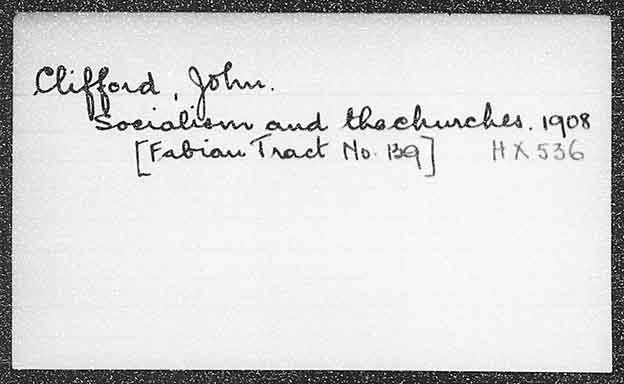 Clifford, John.
Socialism and the churches. 1908
[Fabian Tract No. 139] HX 536